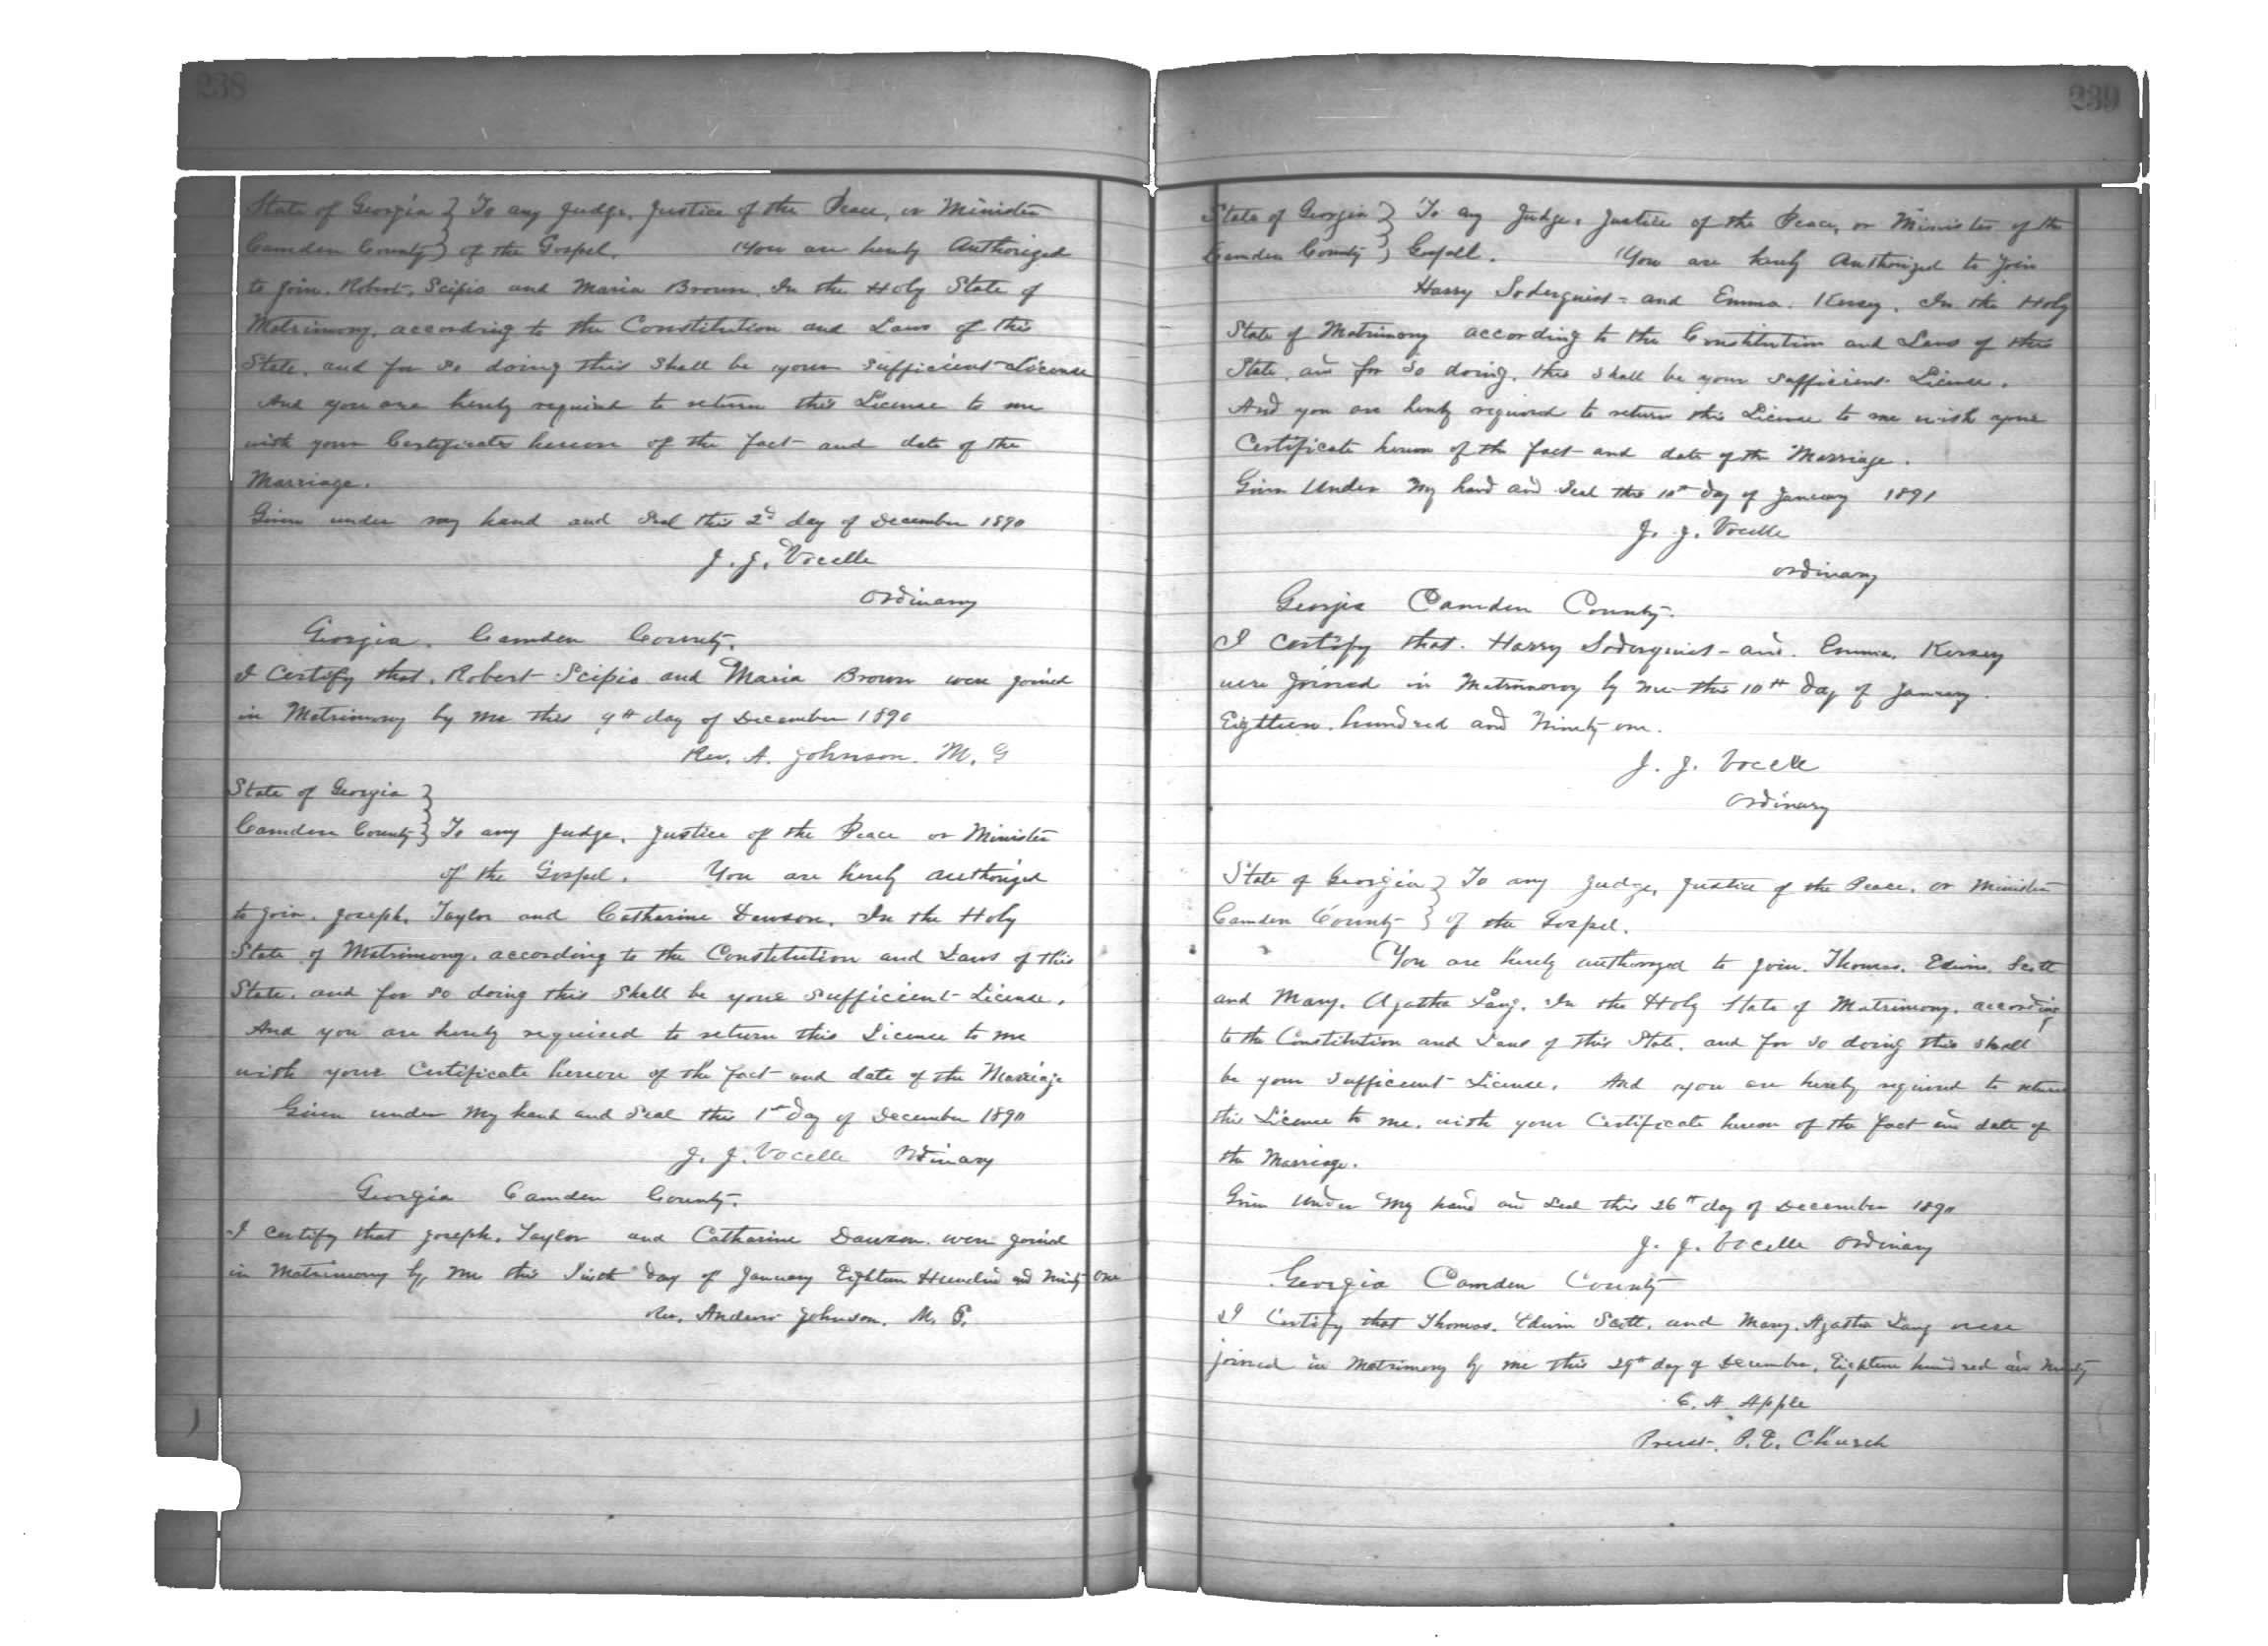 238
State of Georgia } To any Judge, Justice of the Peace, or Minister
Camden County } of the Gospel. You are hereby Authorized
to join. Robert. Scipio and Maria Brown. In the Holy State of
Matrimony, according to the Constitution and Laws of this
State, and for so doing this shall be your sufficient License
And you are hereby required to return this License to me
with your Certificate hereon of the fact and date of the
Marriage.
Given under my hand and Seal this 2d day of December 1890
J. J. Vocelle
Ordinary
Georgia. Camden County.
I Certify that. Robert Scipio and Maria Brown were joined
in Matrimony by me this day of December 1890
Rev. A. Johnson. M. G
State of Georgia }
Camden County } To any Judge. Justice of the Peace or Minister
of the Gospel. You are hereby authorized
to join. Joseph. Taylor and Catharine Dawson. In the Holy
State of Matrimony, according to the Constitution and Laws of this
State, and for so doing this shall be your sufficient License.
And you are hereby required to return this License to me
with your Certificate hereon of the fact and date of the Marriage
Given under my hand and Seal this 1st day of December 1890
J. J. Vocelle Ordinary
Georgia Camden County.
I certify that Joseph. Taylor and Catharine Dawson. were joined
in Matrimony by me this day of January Eighteen Hundred and Ninety One
Rev. Andrew Johnson. M. G.
239
State of Georgia } To any Judge, Justice of the Peace, or Minister of the
Camden County } Gospell. You are hereby Authorized to join
Harry Soderquist - and Emma. Kersey. In the Holy
State of Matrimony according to the Constitution and Laws of this
State, and for so doing, this shall be your sufficient License.
And you are hereby required to return this License to me with your
Certificate hereon of the fact and date of the Marriage.
Given Under My hand and Seal this 10th day of January 1891
J. J. Vocelle
Ordinary
Georgia Camden County.
I Certify that. Harry Soderquist - and. Emma. Kersey
were joined in Matrimony by me this 10th day of January.
Eighteen. hundred and Ninety one.
J. J. Vocelle
Ordinary
State of Georgia } To any Judge, Justice of the Peace, or Minister
Camden County } of the Gospel.
You are hereby authorized to join. Thomas. Edwin. Scott
and Mary. Agatha Lang. In the Holy State of Matrimony. according
to the Constitution and Laws of this State. and for so doing this shall
be your sufficient License. And you are hereby required to return
this License to me. with your Certificate hereon of the fact and date of
the Marriage.
Given Under My hand and Seal this 26th day of December 1890
J. J. Vocelle Ordinary
Georgia Camden County
I Certify that Thomas. Edwin Scott. and Mary. Agatha Lang were
joined in Matrimony by me this 29th day of December, Eighteen hundred and Ninety
C. A. Apple
Priest. P. E. Church